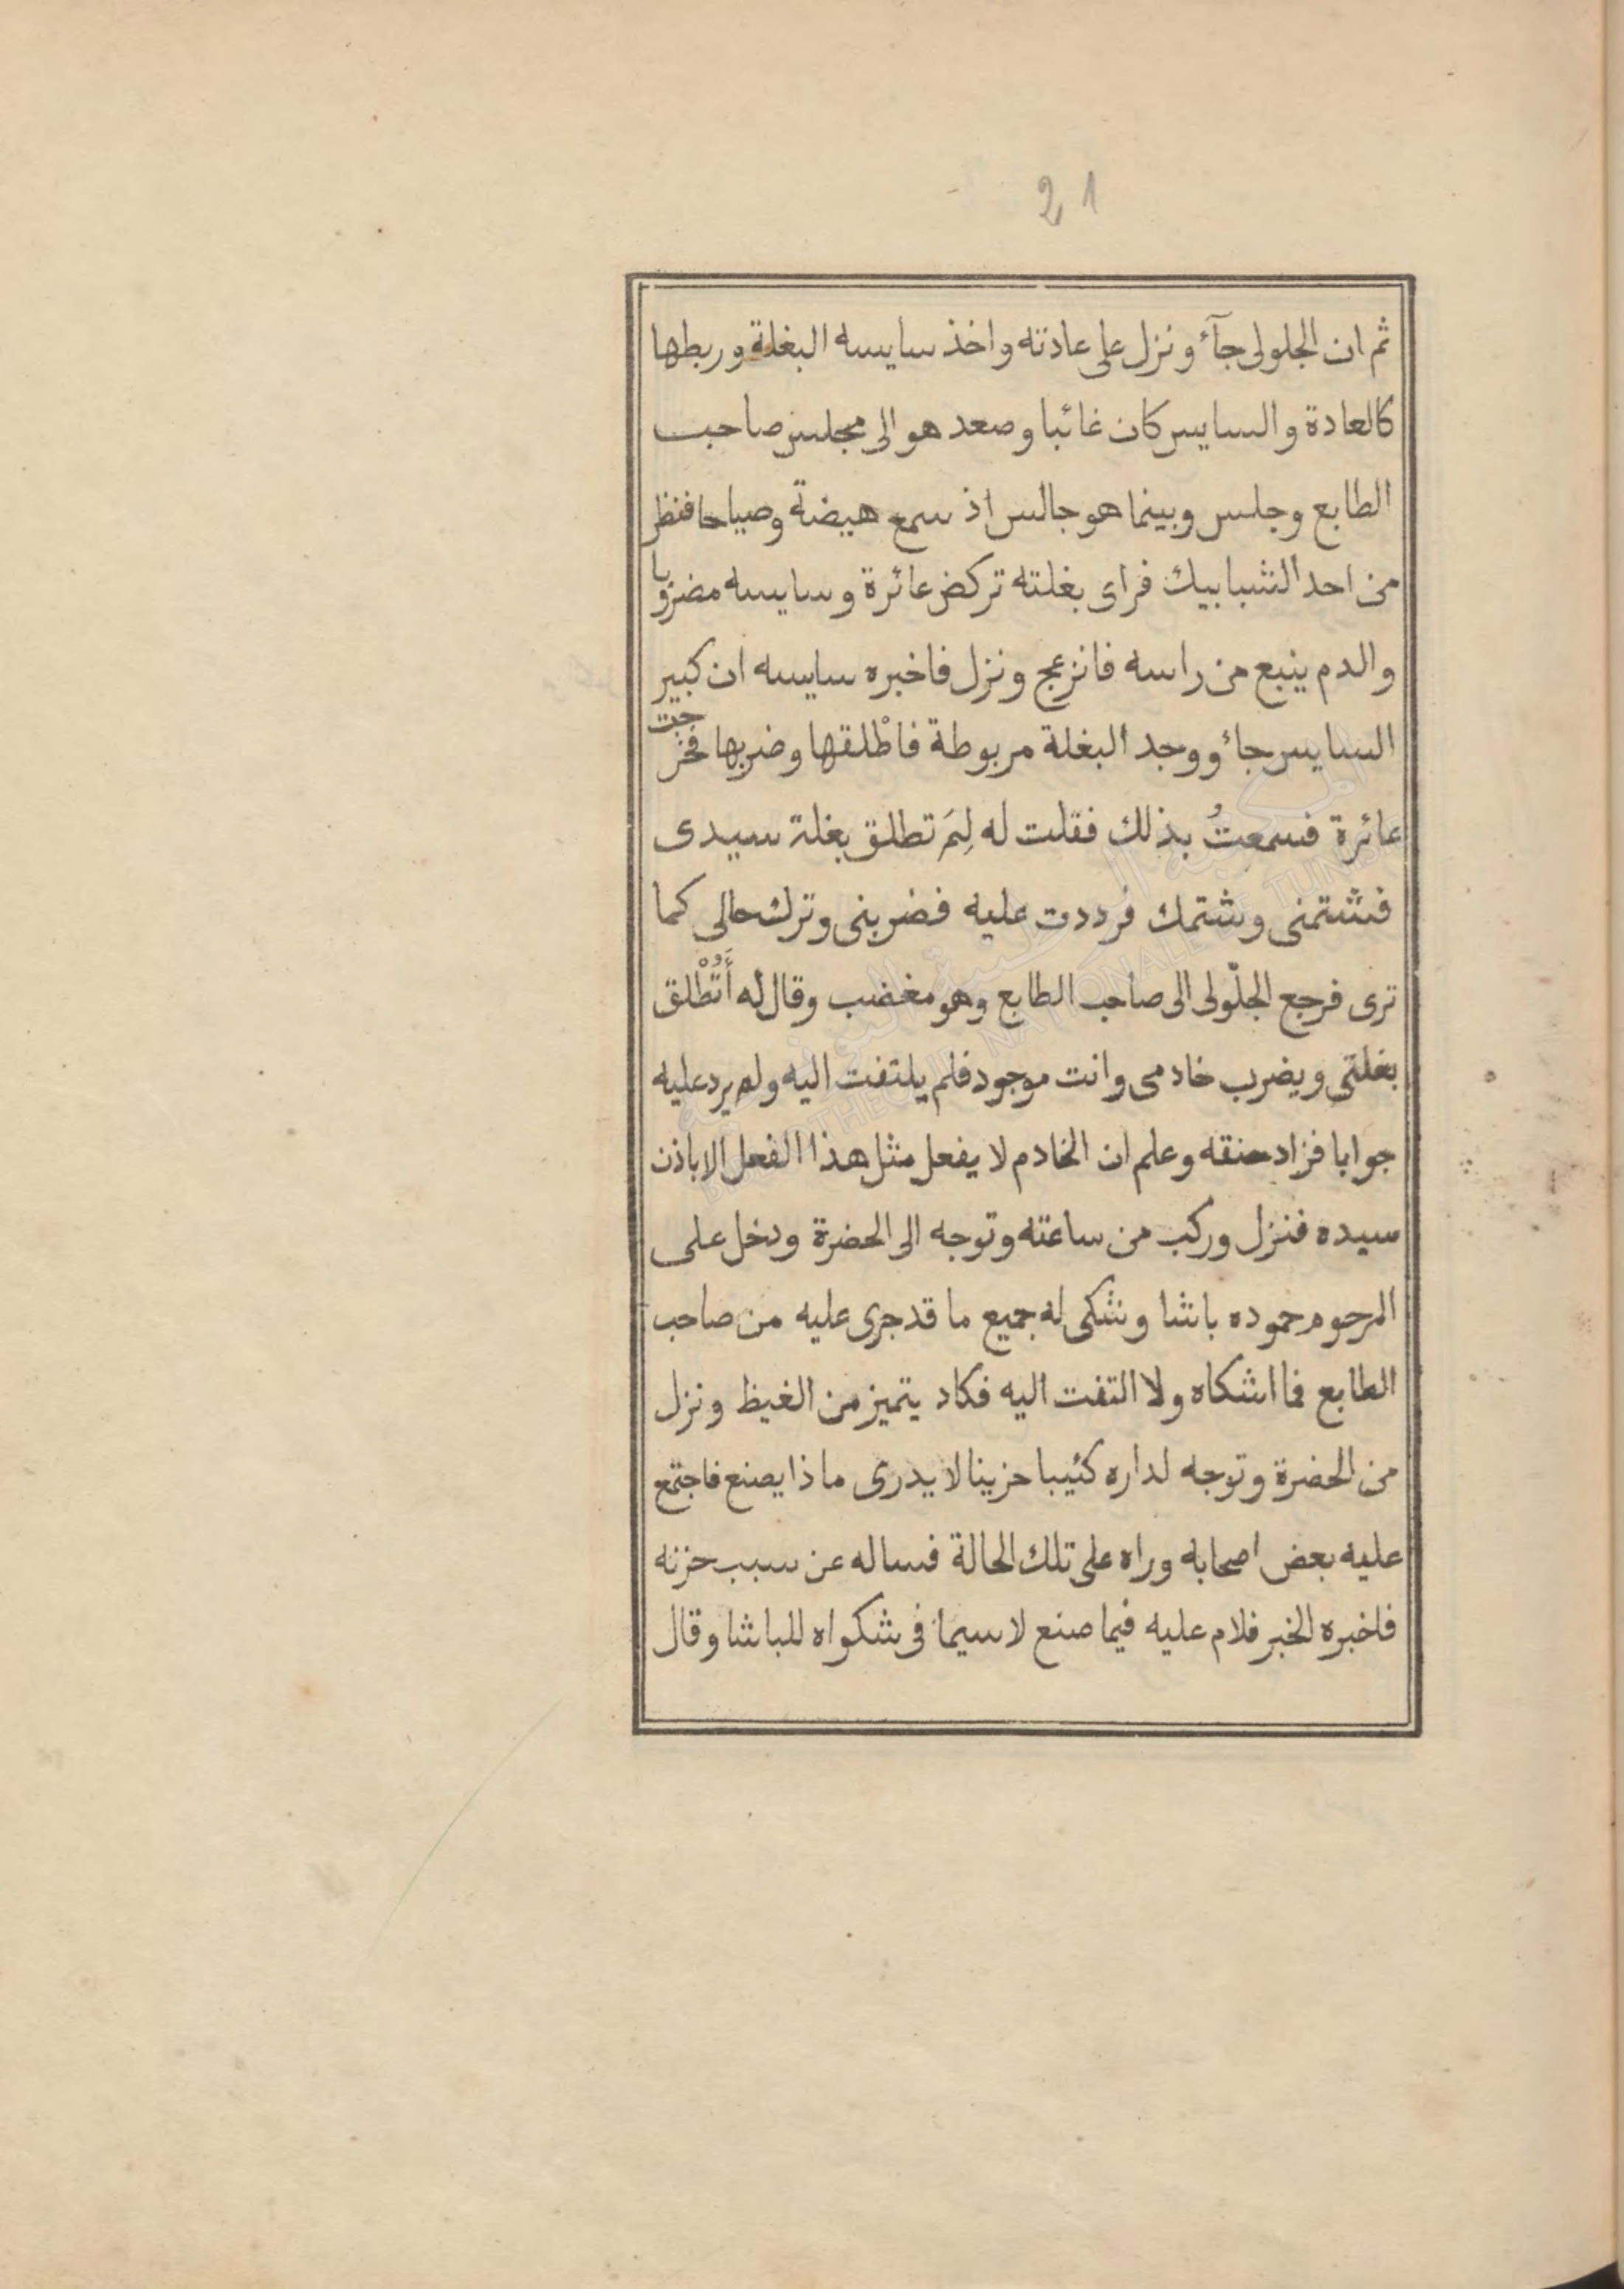 21
ثم ان الجلولى جآء ونزل على عادته واخذ سايسه البغلة وربطها
كالعادة والسايس كان غائبا وصعد هو الى مجلس صاحب
الطابع وجلس وبينما هو جالس اذ سمع هيضة وصياحا فنظر
من احد الشبابيك فراى بغلته تركض عائرة وسايسه مضروبا
والدم ينبع من راسه فانزعج ونزل فاخبره سايسه ان كبير
السايس جاء ووجد البغلة مربوطة فاطْلقها وضربها فخرجت
عائرة فسمعتُ بذلك فقلت له لِمَ تطلق بغلة سيدى
فشتمنى وشتمك فرددت عليه فضربنى وترك حالى كما
ترى فرجع الجلّولى الى صاحب الطابع وهو مغضب وقال له أَتُطْلق
بغلتى ويضرب خادمى وانت موجود فلم يلتفت اليه ولم يرد عليه
جوابا فزاد حنقه وعلم ان الخادم لا يفعل مثل هذا الفعل الا باذن
سيده فنزل وركب من ساعته وتوجه الى الحضرة ودخل على
المرحوم حموده باشا وشكى له جميع ما قد جرى عليه من صاحب
الطابع فما اشكاه ولا التفت اليه فكاد يتميز من الغيظ ونزل
من الحضرة وتوجه لداره كئيبا حزينا لا يدرى ماذا يصنع فاجتمع
عليه بعض اصحابه وراه على تلك الحالة فساله عن سبب حزنه
فاخبره الخبر فلام عليه فيما صنع لاسيما فى شكواه للباشا وقال